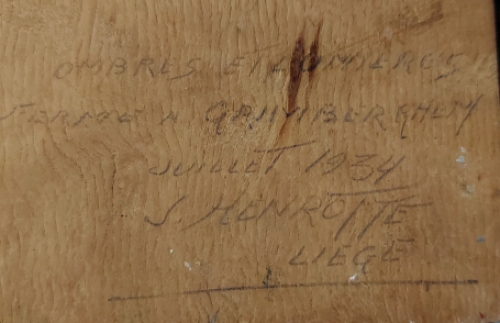 OMBRES ET LUMIERES
FERME A GRUMBERGHEM
JUILLET 1934
J. HENROTTE
LIEGE